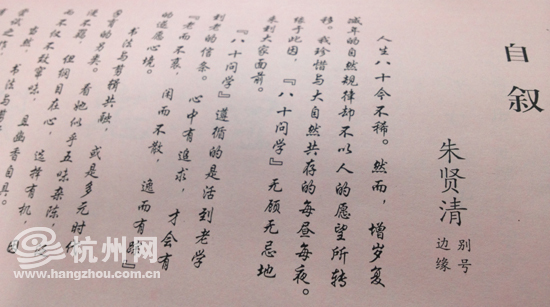 自叙
朱贤清
别号
边缘
人生八十今不稀。然而，增岁复
减年的自然规律却不以人的愿望所转
移。我珍惜与大自然共存的每昼每夜。
缘于此因，『八十问学』无顾无忌地
来到大家面前。
『八十问学』遵循的是活到老学
到老的信条。心中有追求，才会有
『老而不衰，闲而不散，逸而有为』
的逞愿心境。
书法与剪辑共融，或是多元时代
孕育的另类。看他似乎五味杂陈，
而不
但纲目在心，选择有机，
当然，不仅不故窜味，且幽香自具。
尝试之作，书法与剪
杭州网
www.hangzhou.com.cn